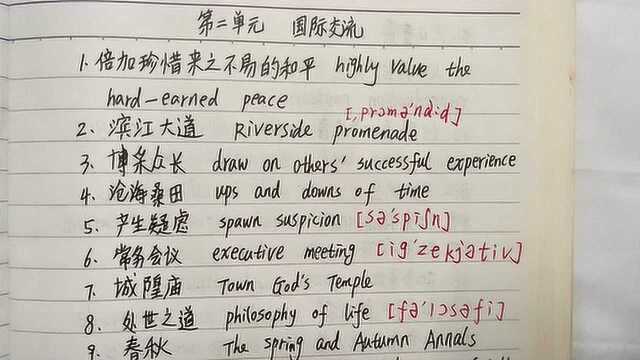 第二单元 国际交流
1. 倍加珍惜来之不易的和平 highly value the
hard-earned peace
[,prɔmə'nɑ:d]
2. 滨江大道 Riverside promenade
3. 博采众长 draw on others' successful experience
4. 沧海桑田 ups and downs of time
5. 产生疑虑 spawn suspicion [sə'spiʃn]
6. 常务会议 executive meeting [ig'zekjətiv]
7. 城隍庙 Town God's Temple
8. 处世之道 philosophy of life [fə'lɔsəfi]
9. 春秋 The spring and Autumn Annals